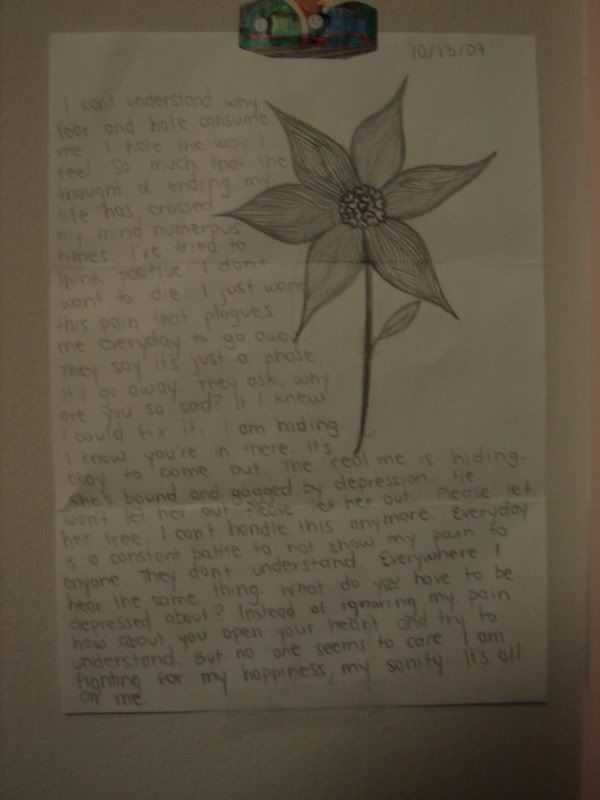 10/13/07
I can't understand why
fear and hate consume
me. I hate the way I
feel. So much that the
thought of ending my
life has crossed
my mind numerous
times. I've tried to
think positive. I don't
want to die. I just want
this pain that plagues
me everyday to go away.
They say it's just a phase
it'll go away. They ask, why
are you so sad? If I knew
I could fix it. I am hiding.
I know you're in there. It's
okay to come out. The real me is hiding.
She's bound and gagged by depression. He
won't let her out. Please let her out. Please let
her free. I can't handle this anymore. Everyday
is a constant battle to not show my pain to
anyone. They don't understand. Everywhere I
hear the same thing. What do you have to be
depressed about? Instead of ignoring my pain
how about you open your heart and try to
understand. But no one seems to care. I am
fighting for my happiness, my sanity. It's all
on me.